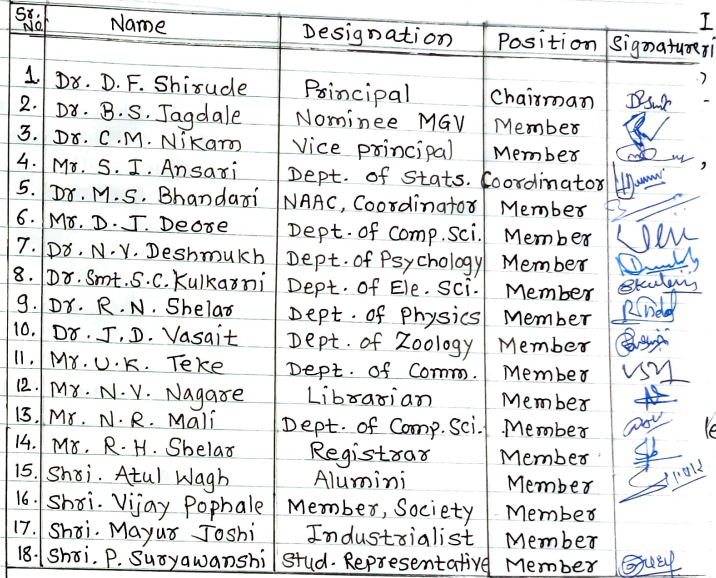 Sr. No. Name Designation Position Signature
1. Dr. D. F. Shirude Principal Chairman
2. Dr. B. S. Jagdale Nominee MGV Member
3. Dr. C. M. Nikam Vice principal Member
4. Mr. S. I. Ansari Dept. of Stats. Coordinator
5. Dr. M. S. Bhandari NAAC, Coordinator Member
6. Mr. D. J. Deore Dept. of Comp. Sci. Member
7. Dr. N. V. Deshmukh Dept. of Psychology Member
8. Dr. Smt. S. C. Kulkarni Dept. of Ele. Sci. Member
9. Dr. R. N. Shelar Dept. of Physics Member
10. Dr. J. D. Vasait Dept. of Zoology Member
11. Mr. U. K. Teke Dept. of Comm. Member
12. Mr. N. V. Nagare Librarian Member
13. Mr. N. R. Mali Dept. of Comp. Sci. Member
14. Mr. R. H. Shelar Registrar Member
15. Shri. Atul Wagh Alumini Member
16. Shri. Vijay Pophale Member, Society Member
17. Shri. Mayur Joshi Industrialist Member
18. Shri. P. Suryawanshi Stud. Representative Member